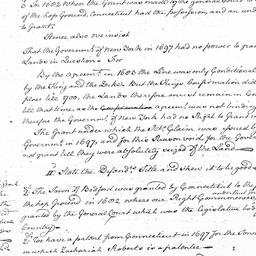 2. In 1602 When the Grant was made by the general Court
of the hop Ground, Connecticut had the possession, and an und
to Grant.
Hence also we insist
That the Government of New York in 1697 had no power to grant
Lands in Question. For
By the agreemt in 1683 the Line was only Conditional
by the King and the Duke. But the Kings Confirmation did
place till 1700. the Lands therefore must remain in Conn
till that time. as the agreement was not binding
therefore the Governmt of New York had no Right to Grant in
The Grant under which the Plfs Claim was issued by
Governmt in 1697. and for this Reason void. for the Gov
not grant till they were absolutely seized of the Land
II State the Defendts Title and shew it to be good a
1. The Town of Bedford was granted by Connecticut to the
the hop Ground in 1602 where our Right Commences
granted by the General Court which was the legislative bod
Country
2. We have a patent from Connecticut in 1697 for the Town
in which Zachariah Roberts is a patentee